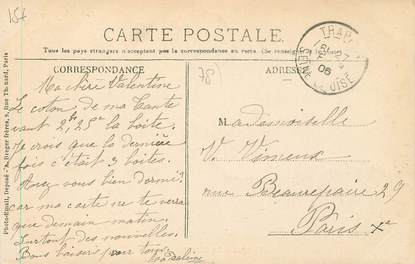 15t
CARTE POSTALE
Tous les pays étrangers n'acceptent pas la correspondance au recto (Se renseigner
CORRESPONDANCE
78
ADRESSE
TRAP
06
SEINE
OISE
Ma chère Valentine
Le coton de ma tante
vaut 2,25 la boîte.
Je crois que la dernière
fois c'était 3 boîtes.
Avez vous bien dormi?
car ma carte ne va être
que demain matin.
Surtout des nouvelles.
Bons baisers pour tous
Mademoiselle
V. Vimeux
rue Beaurepaire 29
Paris Xe
Photo-Émail, Imposé - A. Breger Frères, 9, Rue Thénard, Paris